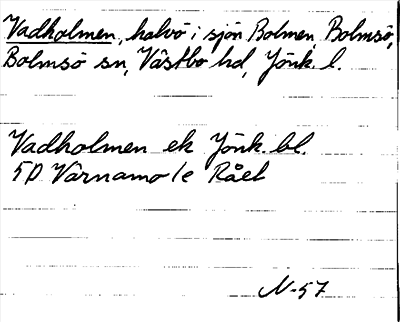 Vadholmen, halvö i sjön Bolmen, Bolmsö,
Bolmsö sn, Västbo hd, Jönk. l.
Vadholmen ek Jönk. bl.
5D Värnamo 1e Rået
N-57